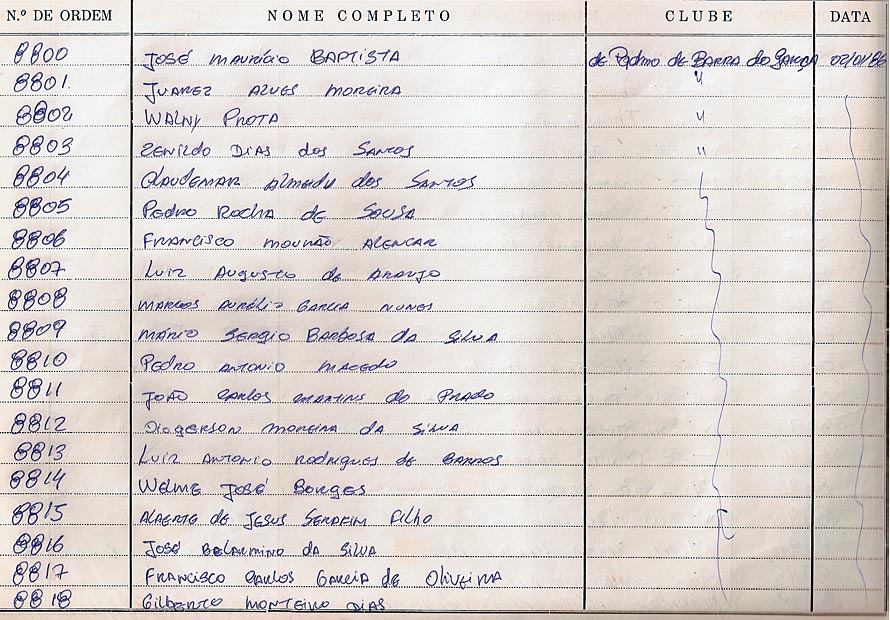 N.º DE ORDEM NOME COMPLETO CLUBE DATA
8800 José Mauricio Baptista de Pedro de Barra do Garça 02/01/86
8801. Juarez Alves Moreira "
8802 Walny Prota "
8803 Zenildo Dias dos Santos "
8804 Claudemar Almeida dos Santos
8805 Pedro Rocha de Sousa
8806 Francisco Mourão Alencar
8807 Luiz Augusto de Araujo
8808 Marcos Aurélio Garcia Nunes
8809 Mário Sergio Barbosa da Silva
8810 Pedro Antonio Macedo
8811 João Carlos Martins do Prado
8812 Diogerson Moreira da Silva
8813 Luiz Antonio Rodrigues de Barros
8814 Welme José Borges
8815 Alberte de Jesus Serafim Filho
8816 José Belarmino da Silva
8817 Francisco Carlos Garcia de Oliveira
8818 Gilberto Monteiro Dias